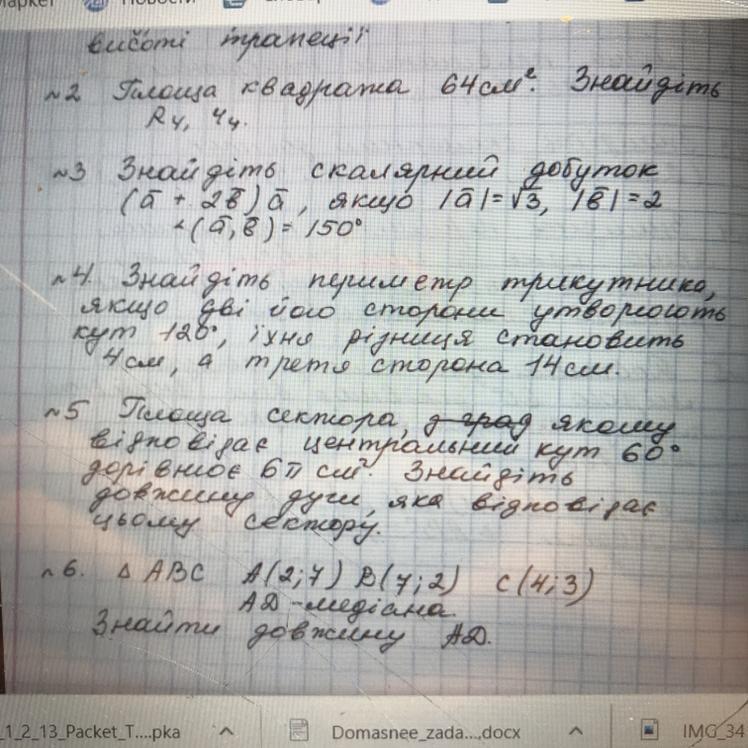 висоті трапеції
№2 Площа квадрата 64см². Знайдіть
R₄, r₄.
№3 Знайдіть скалярний добуток
(ā + 2b̄)ā, якщо |ā|=√3, |b̄|=2
∠(ā,b̄)=150°
№4. Знайдіть периметр трикутника,
якщо дві його сторони утворюють
кут 120°, їхня різниця становить
4см, а третя сторона 14см.
№5 Площа сектора, якому
відповідає центральний кут 60°
дорівнює 6π см². Знайдіть
довжину дуги, яка відповідає
цьому сектору.
№6. △ABC A(2;7) B(7;2) C(4;3)
AD-медіана.
Знайти довжину AD.
_1_2_13_Packet_T....pka Domasnee_zada...,docx IMG_34